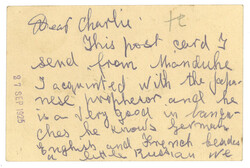 Dear Charlie!
This post card I
send from Manduke
I acquinted with the japa-
nese propheror and he
is a very good in langu-
ches he knows germans
English and french besides
a little Russian We
27 SEP 1925